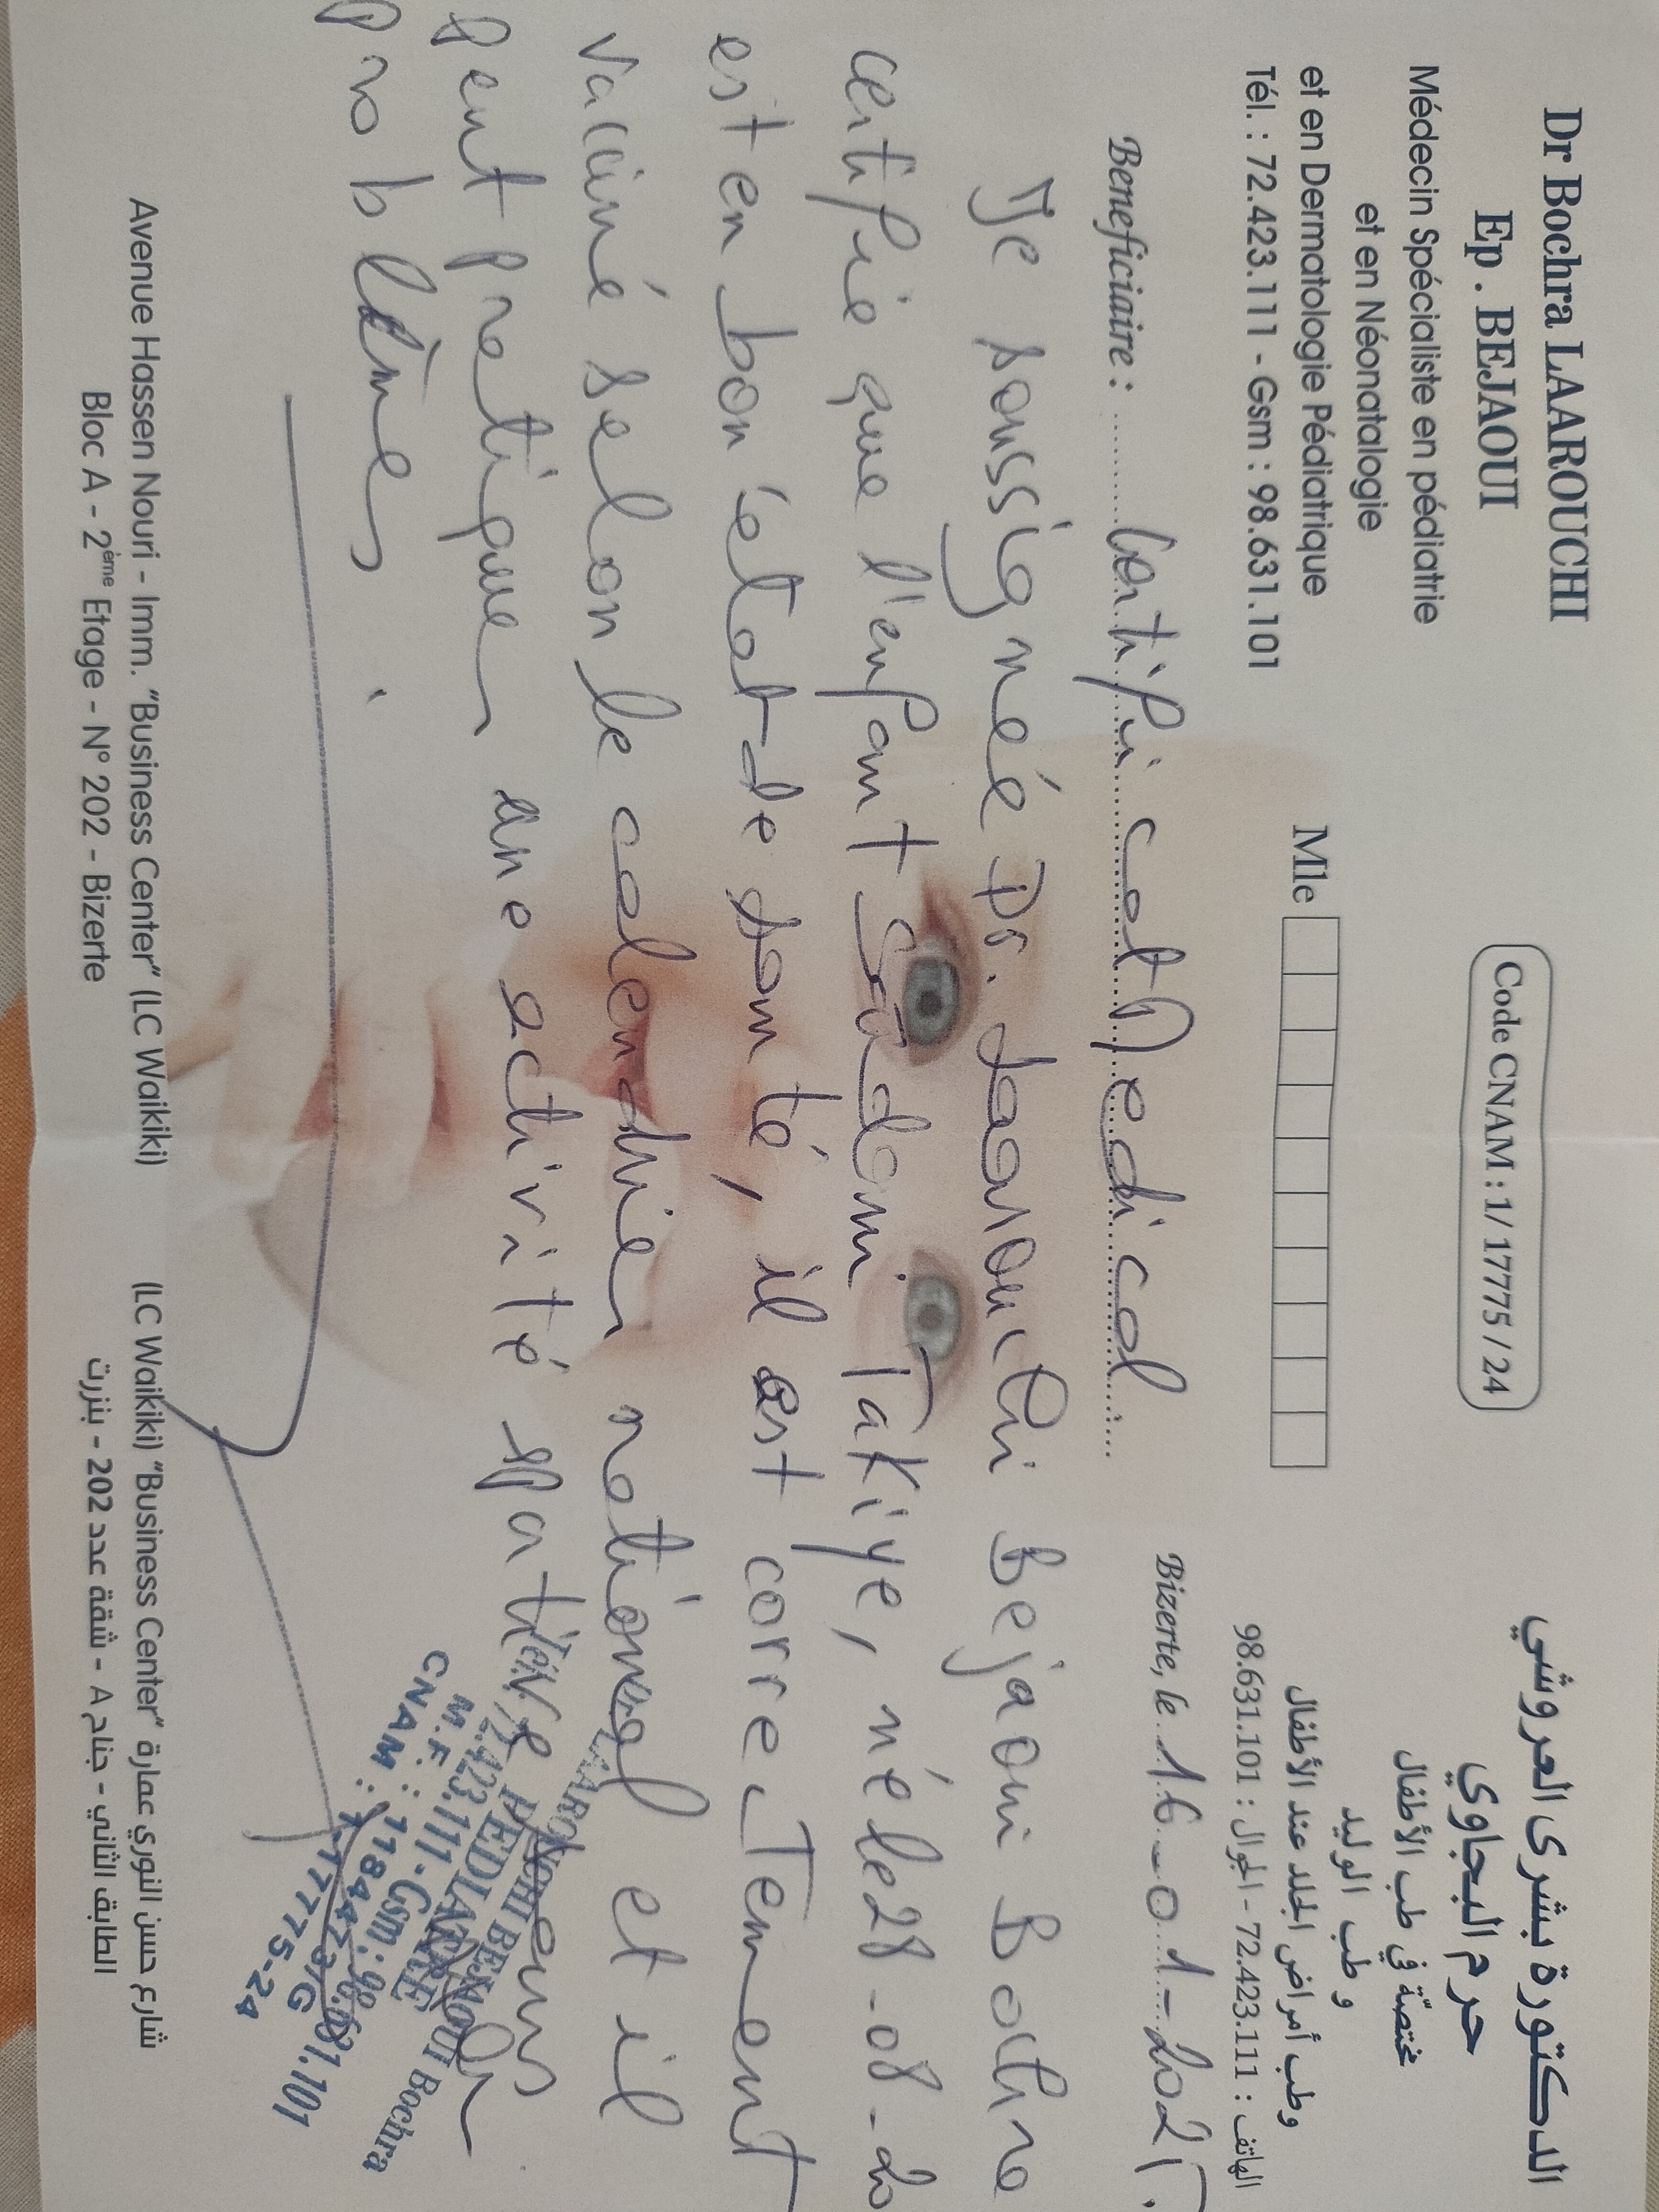 Dr Bochra LAAROUCHI
Ep . BEJAOUI
Médecin Spécialiste en pédiatrie
et en Néonatalogie
et en Dermatologie Pédiatrique
Tél. : 72.423.111 - Gsm : 98.631.101
Code CNAM : 1/ 17775 / 24
Mle
الدكتورة بشرى العروشي
حرم البجاوي
مختصّة في طب الأطفال
و طب الوليد
وطب أمراض الجلد عند الأطفال
الهاتف : 72.423.111 - الجوال : 98.631.101
Bizerte, le 16-01-202
Beneficiaire : Certificat Medical
Je soussigné Dr. Laarouchi Bejaoui Bochra
certifie que l'enfant Takiye, né le 28-08-20
est en bon état de santé, il est correctement
vacciné selon le calendrier national et il
peut pratiquer une activité sportive sans
problèmes.
LAAROUCHI BEJAOUI Bochra
PEDIATRE
72.423.111 - Gsm : 98.631.101
M.F. : 1184473/G
CNAM : 1-17775-24
Avenue Hassen Nouri - Imm. "Business Center" (LC Waikiki)
Bloc A - 2ème Etage - N° 202 - Bizerte
شارع حسن النوري عمارة "Business Center" (LC Waikiki)
الطابق الثاني - جناح A - شقة عدد 202 - بنزرت